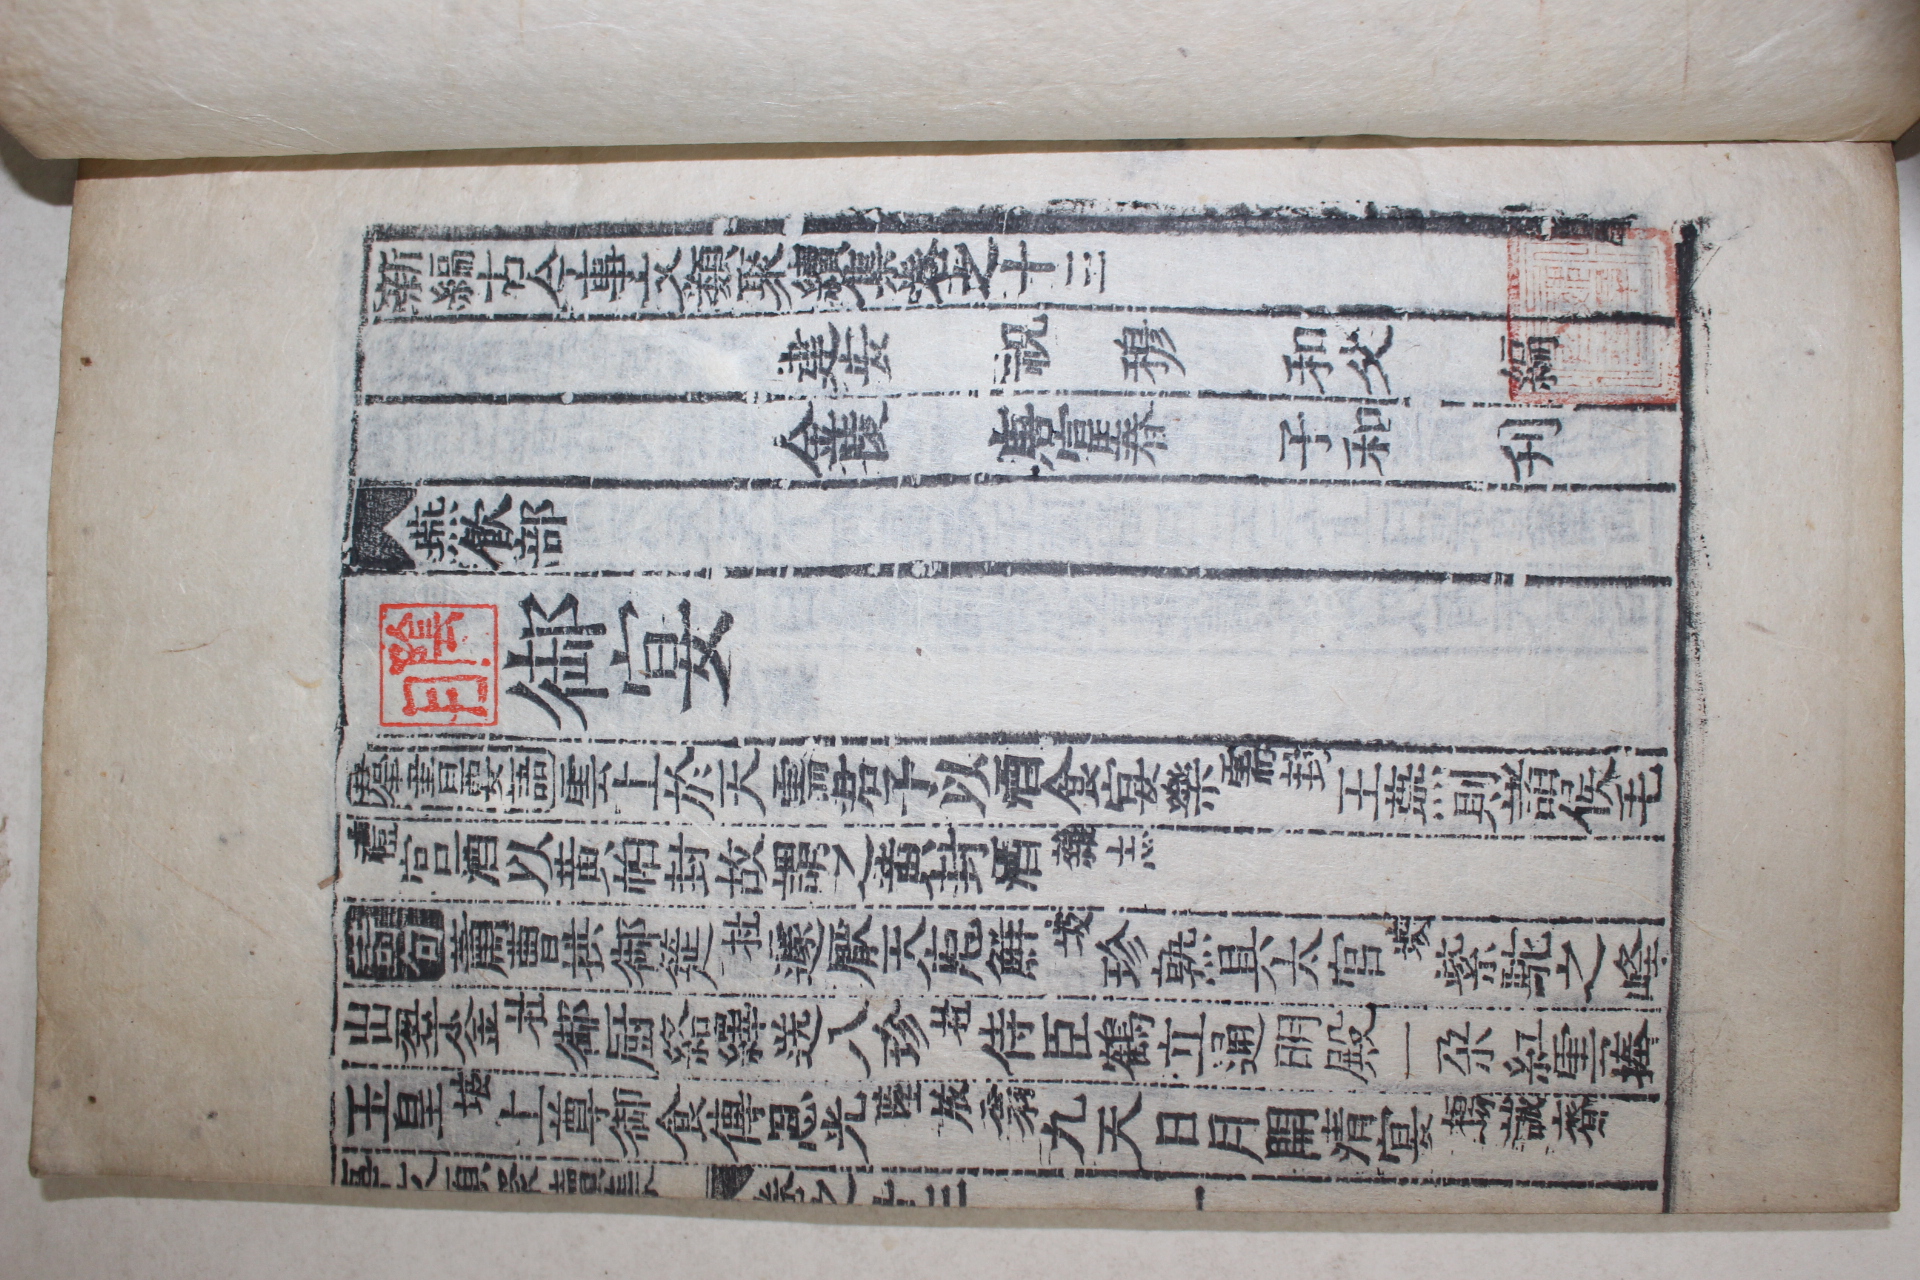 新編古今事文類聚續集卷之十三
建安 祝 穆 和父 編
金陵 唐富春 子和 刊
燕飲部
御宴
羣書要語雲上於天需君子以酒食宴樂需封王燕則諸侯毛
禮宫酒以黃帕封故謂之黃封酒雜志
蕭曹拱御筵杜遽厭天庖鮮坡珍熟具太官坡紫駝之峰
出翠釜杜御厨絡繹送八珍杜侍臣鶴立通明殿一朶紅雲捧
玉皇坡上尊御食傳恩光陸放翁九天日月開清宴楊誠齋
事文類聚續集 卷之十三 一